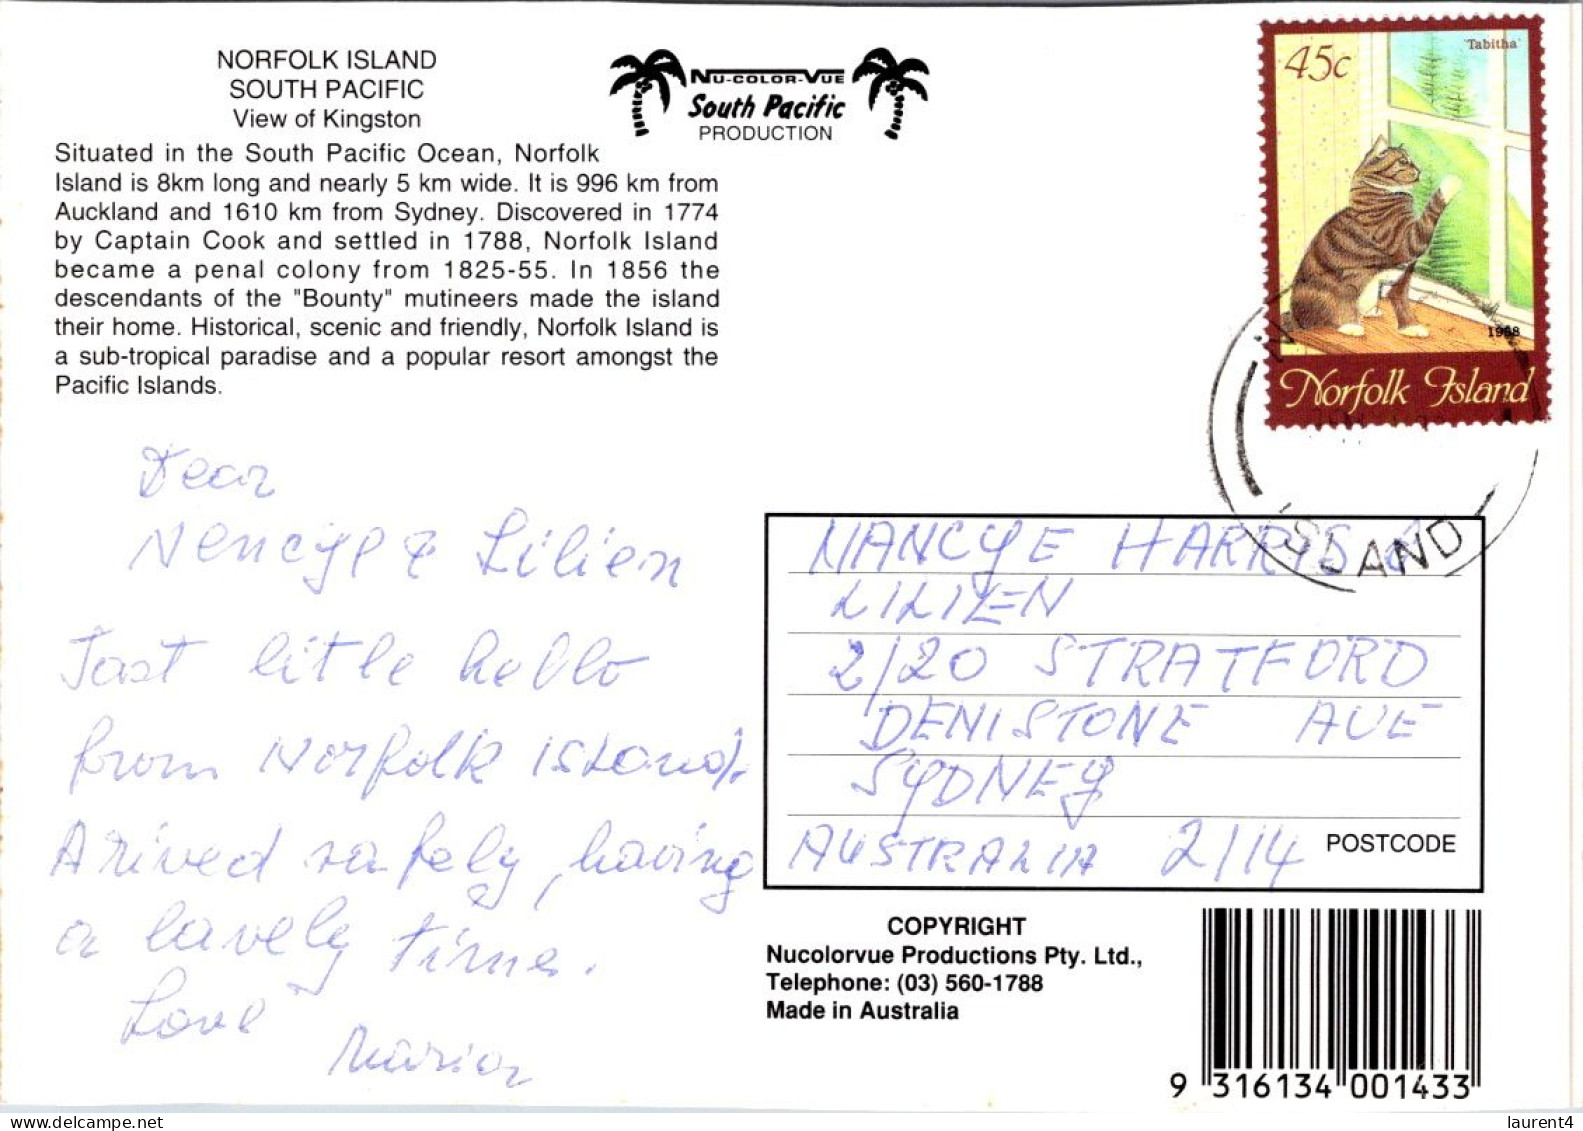 NORFOLK ISLAND
SOUTH PACIFIC
View of Kingston
Situated in the South Pacific Ocean, Norfolk
Island is 8km long and nearly 5 km wide. It is 996 km from
Auckland and 1610 km from Sydney. Discovered in 1774
by Captain Cook and settled in 1788, Norfolk Island
became a penal colony from 1825-55. In 1856 the
descendants of the "Bounty" mutineers made the island
their home. Historical, scenic and friendly, Norfolk Island is
a sub-tropical paradise and a popular resort amongst the
Pacific Islands.
NU-COLOR-VUE
South Pacific
PRODUCTION
45c
'Tabitha'
1998
Norfolk Island
ISLAND
Dear
Nencye & Lilien
Jast little hello
from Norfolk Island.
Arived safely, having
a lavely time.
Love
Marion
NANCYE HARRIS &
LILIEN
2/20 STRATFORD
DENISTONE AVE
SYDNEY
AUSTRALIA 2114
POSTCODE
COPYRIGHT
Nucolorvue Productions Pty. Ltd.,
Telephone: (03) 560-1788
Made in Australia
9 316134 001433
delcampe.net
laurent4